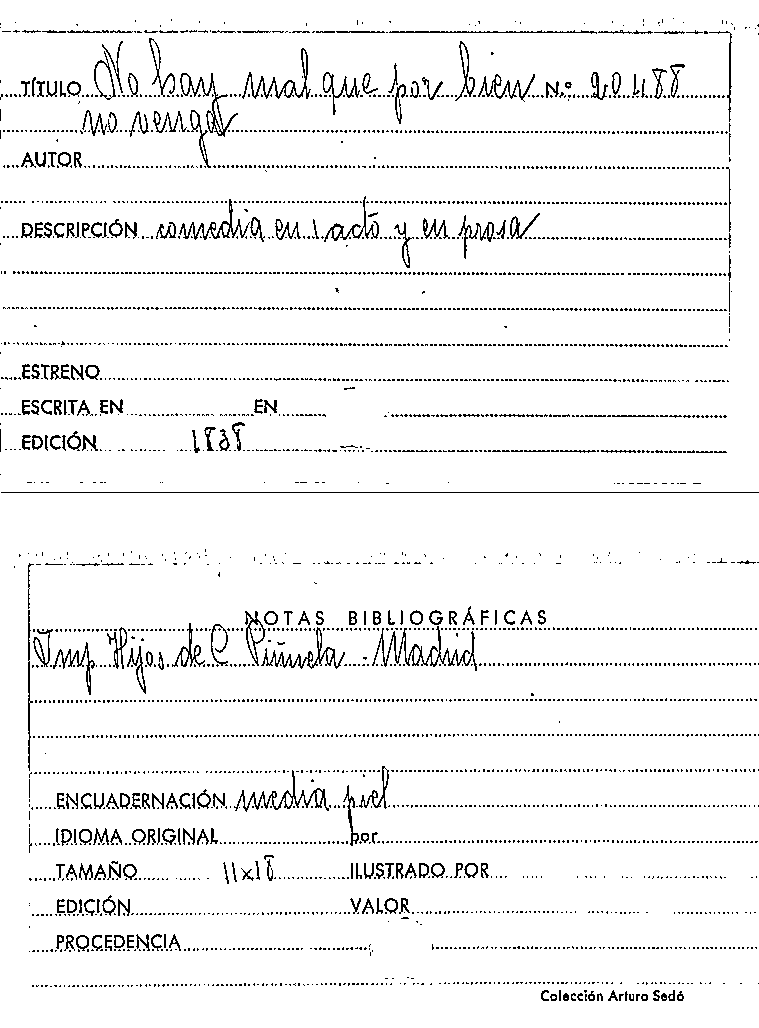 TÍTULO No hay mal que por bien N.º 20488
no venga
AUTOR
DESCRIPCIÓN comedia en 1 acto y en prosa
ESTRENO
ESCRITA EN EN
EDICIÓN 1838
NOTAS BIBLIOGRÁFICAS
Imp Hijos de C Piñuela - Madrid
ENCUADERNACIÓN media piel
IDIOMA ORIGINAL por
TAMAÑO 11x18 ILUSTRADO POR
EDICIÓN VALOR
PROCEDENCIA
Colección Arturo Sedó